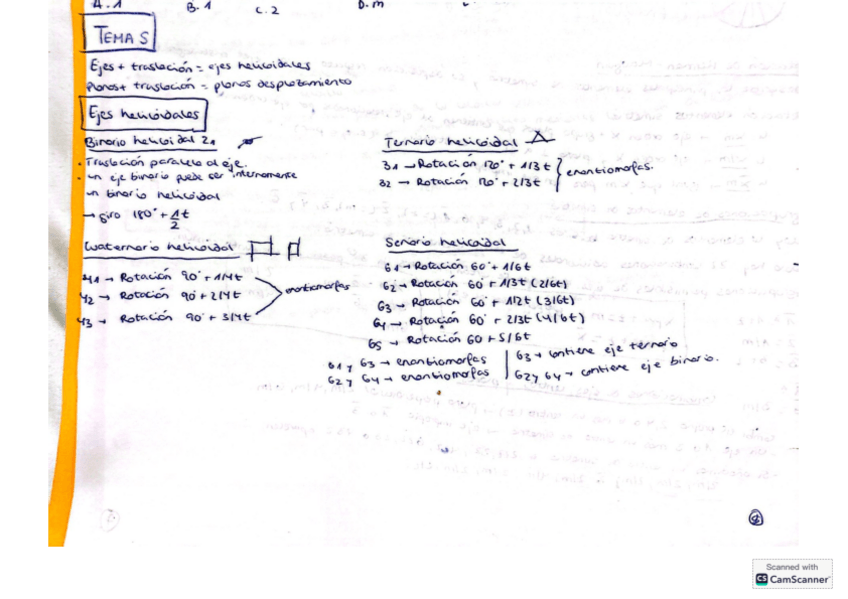 A. 1 B. 1 C. 2 D. m
TEMA 5
Ejes + traslación = ejes helicoidales
Planos + traslación = planos desplazamiento
Ejes helicoidales
Binario helicoidal 21
· Traslación paralela al eje.
· un eje binario puede ser internamente
un binario helicoidal
→ giro 180° + 1/2 t
Ternario helicoidal
31 → Rotación 120° + 1/3 t
32 → Rotación 120° + 2/3 t
enantiomorfas.
Cuaternario helicoidal
41 → Rotación 90° + 1/4 t
42 → Rotación 90 + 2/4 t
43 → Rotación 90° + 3/4 t
enantiomorfas
Senario helicoidal
61 → Rotación 60° + 1/6 t
62 → Rotación 60 + 1/3 t (2/6 t)
63 → Rotación 60° + 1/2 t (3/6 t)
64 → Rotación 60° + 2/3 t (4/6 t)
65 → Rotación 60 + 5/6 t
61 y 65 → enantiomorfas
62 y 64 → enantiomorfas
63 → contiene eje ternario
62 y 64 → contiene eje binario.
8
Scanned with
CS CamScanner